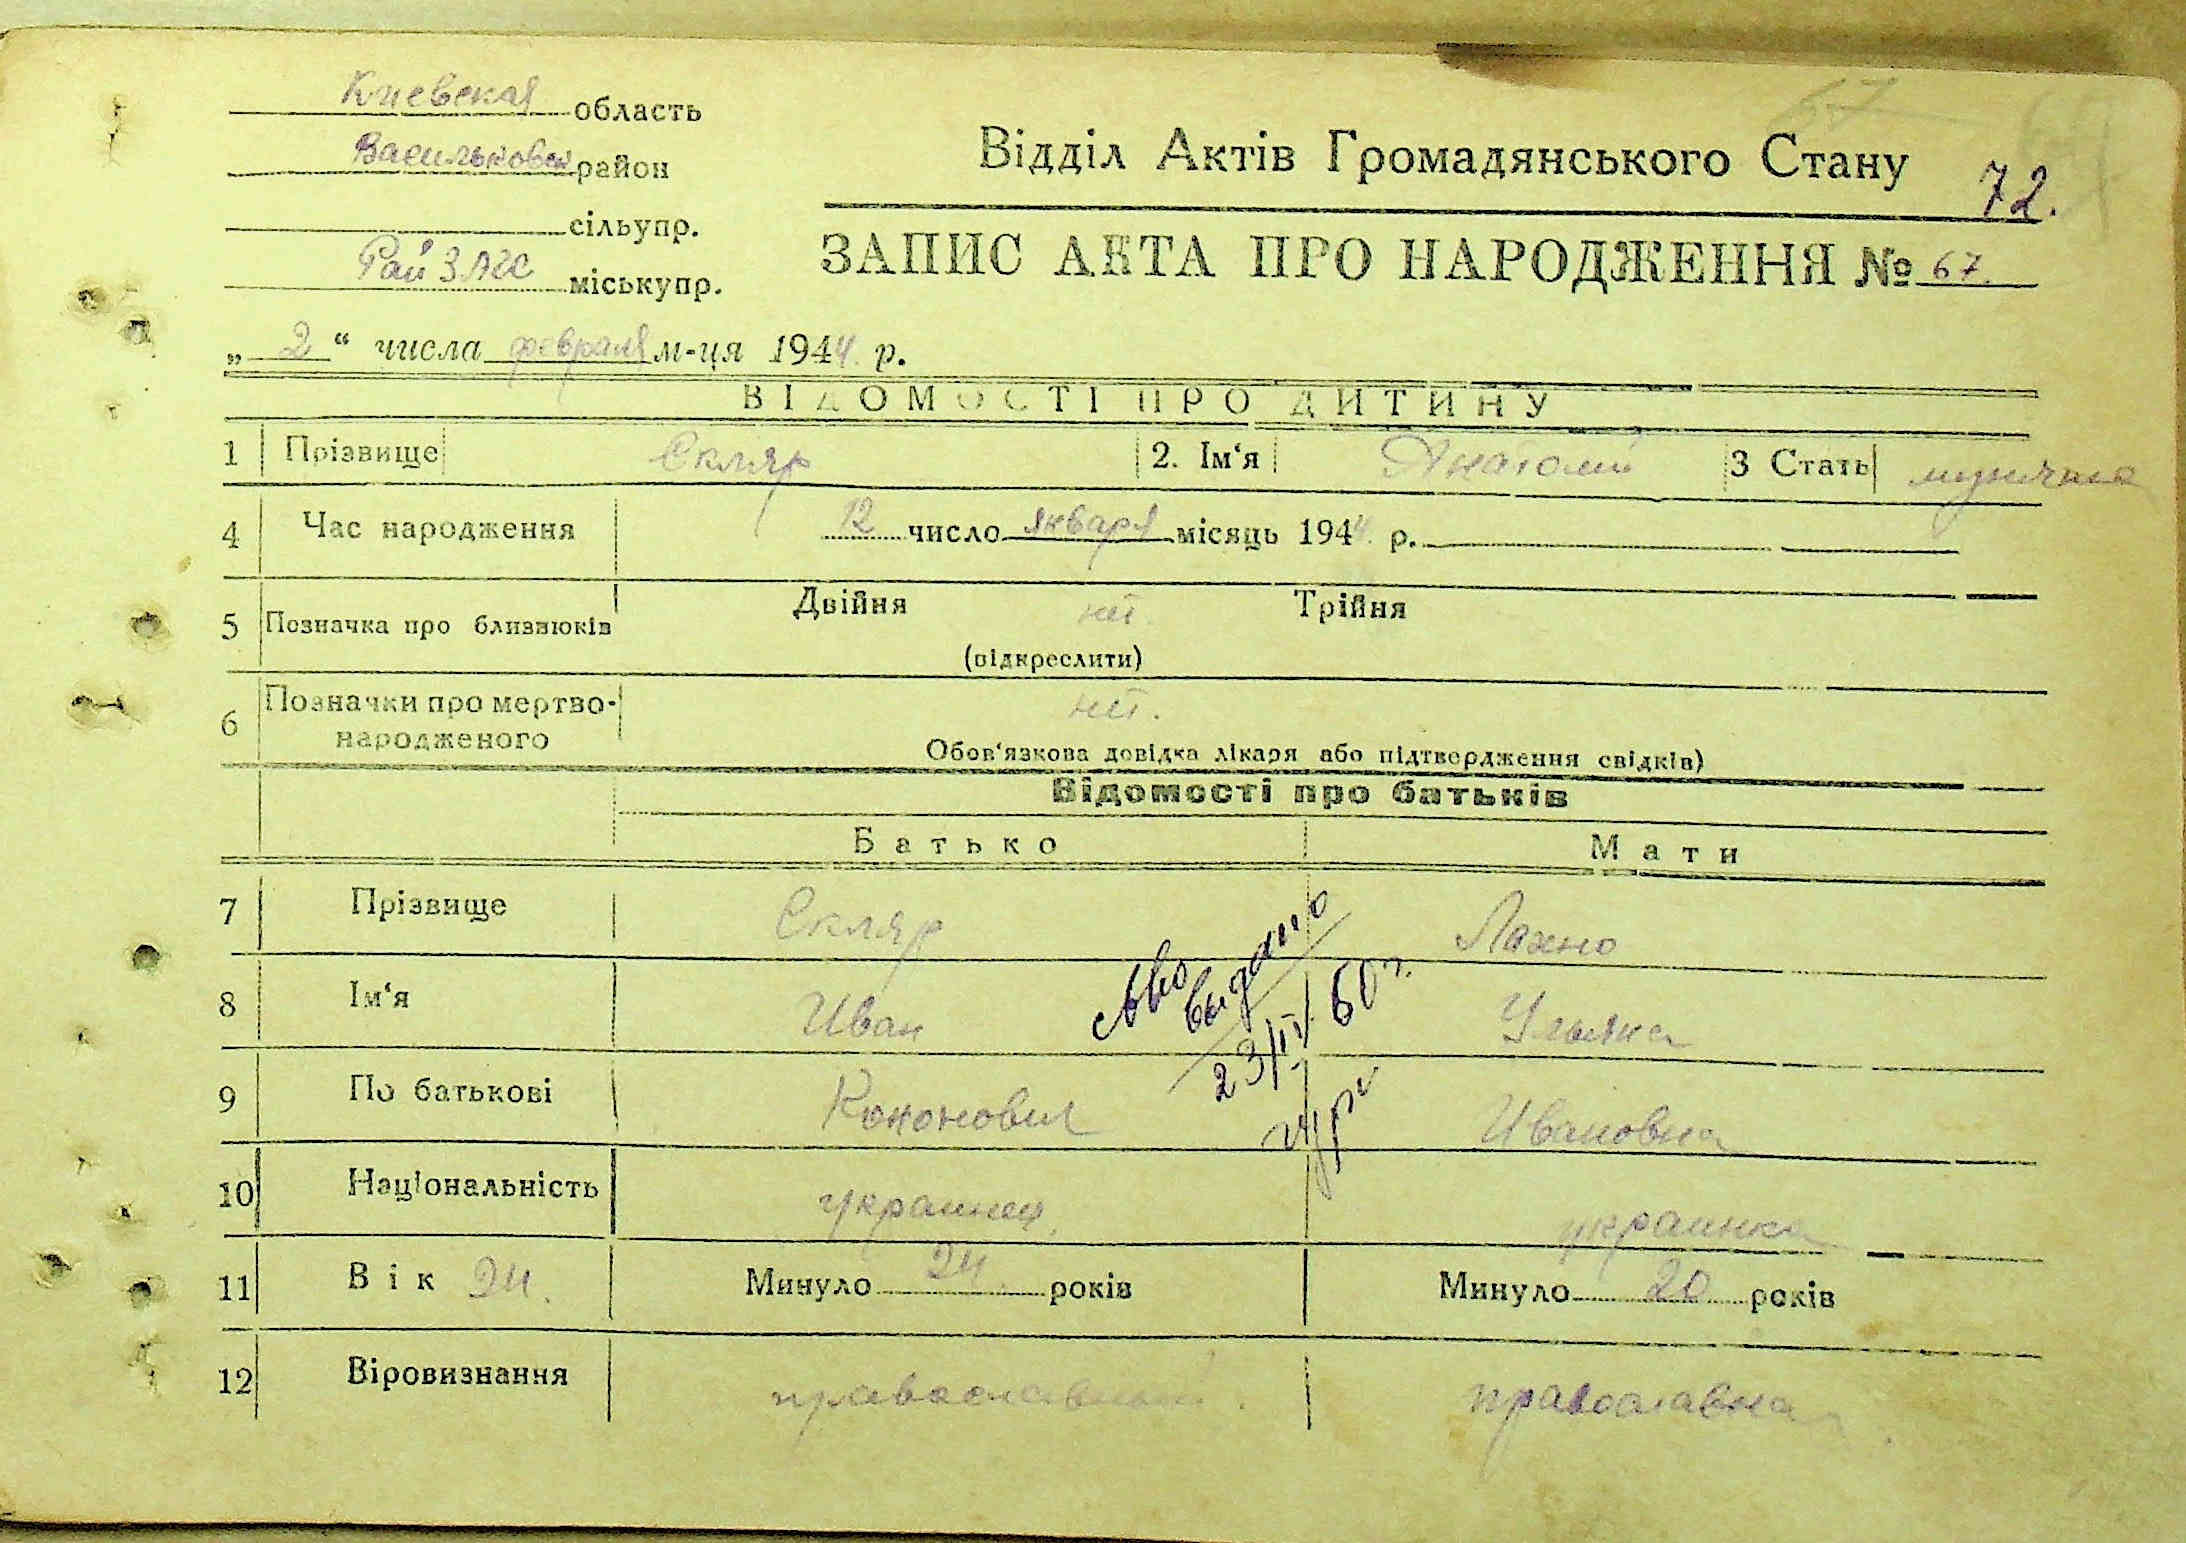 Киевская область
Васильковск район
сільупр.
Рай ЗАГС міськупр.
67
Відділ Актів Громадянського Стану 72.
ЗАПИС АКТА ПРО НАРОДЖЕННЯ № 67.
„ 2 “ числа февраля м-ця 1944. р.
ВІДОМОСТІ ПРО ДИТИНУ
1 Прізвище Скляр 2. Ім‘я Анатолий 3 Стать
4 Час народження 12 число января місяць 1944. р.
5 Позначка про близнюків Двійня нет. Трійня
(підкреслити)
6 Позначки про мертво-народженого нет.
Обов‘язкова довідка лікаря або підтвердження свідків)
Відомості про батьків
Батько Мати
7 Прізвище Скляр Лахно
8 Ім‘я Иван Ульяна
9 По батькові Кононович Ивановна
10 Національність украинец. украинка
11 Вік 24. Минуло 24. років Минуло 20 років
12 Віровизнання православный. православная.
выдано
23/IV. 60 г.